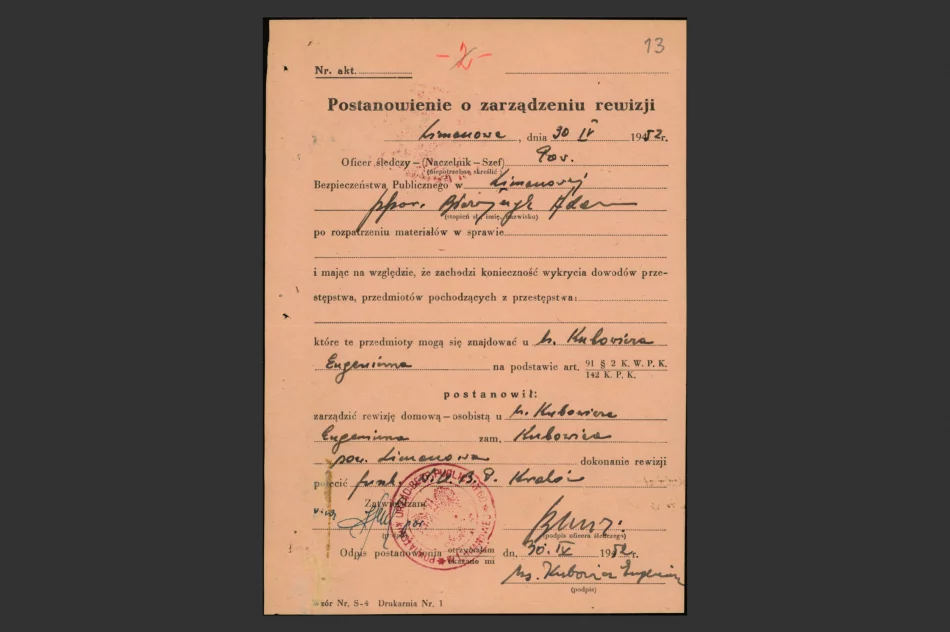 13
- 2 -
Nr. akt.
Postanowienie o zarządzeniu rewizji
Limanowa, dnia 30 IV 1952 r.
Oficer śledczy — (Naczelnik — Szef) Pow.
(niepotrzebne skreślić)
Bezpieczeństwa Publicznego w Limanowej
ppor. Adam
(stopień sł., imię, nazwisko)
po rozpatrzeniu materiałów w sprawie
i mając na względzie, że zachodzi konieczność wykrycia dowodów prze-
stępstwa, przedmiotów pochodzących z przestępstwa:
które te przedmioty mogą się znajdować u ks. Kubowicza
Eugeniusza na podstawie art. 91 § 2 K. W. P. K.
142 K. P. K.
postanowił:
zarządzić rewizję domową — osobistą u ks. Kubowicza
Eugeniusza zam. Kubowica
pow. Limanowa dokonanie rewizji
polecić funk. W.U.B.P. Kraków
Zatwierdzam
(podpis oficera śledczego)
Odpis postanowienia otrzymałem dn. 30. IV 1952 r.
okazane mi
Ks. Kubowicz Eugeniusz
(podpis)
Wzór Nr. S-4 Drukarnia Nr. 1